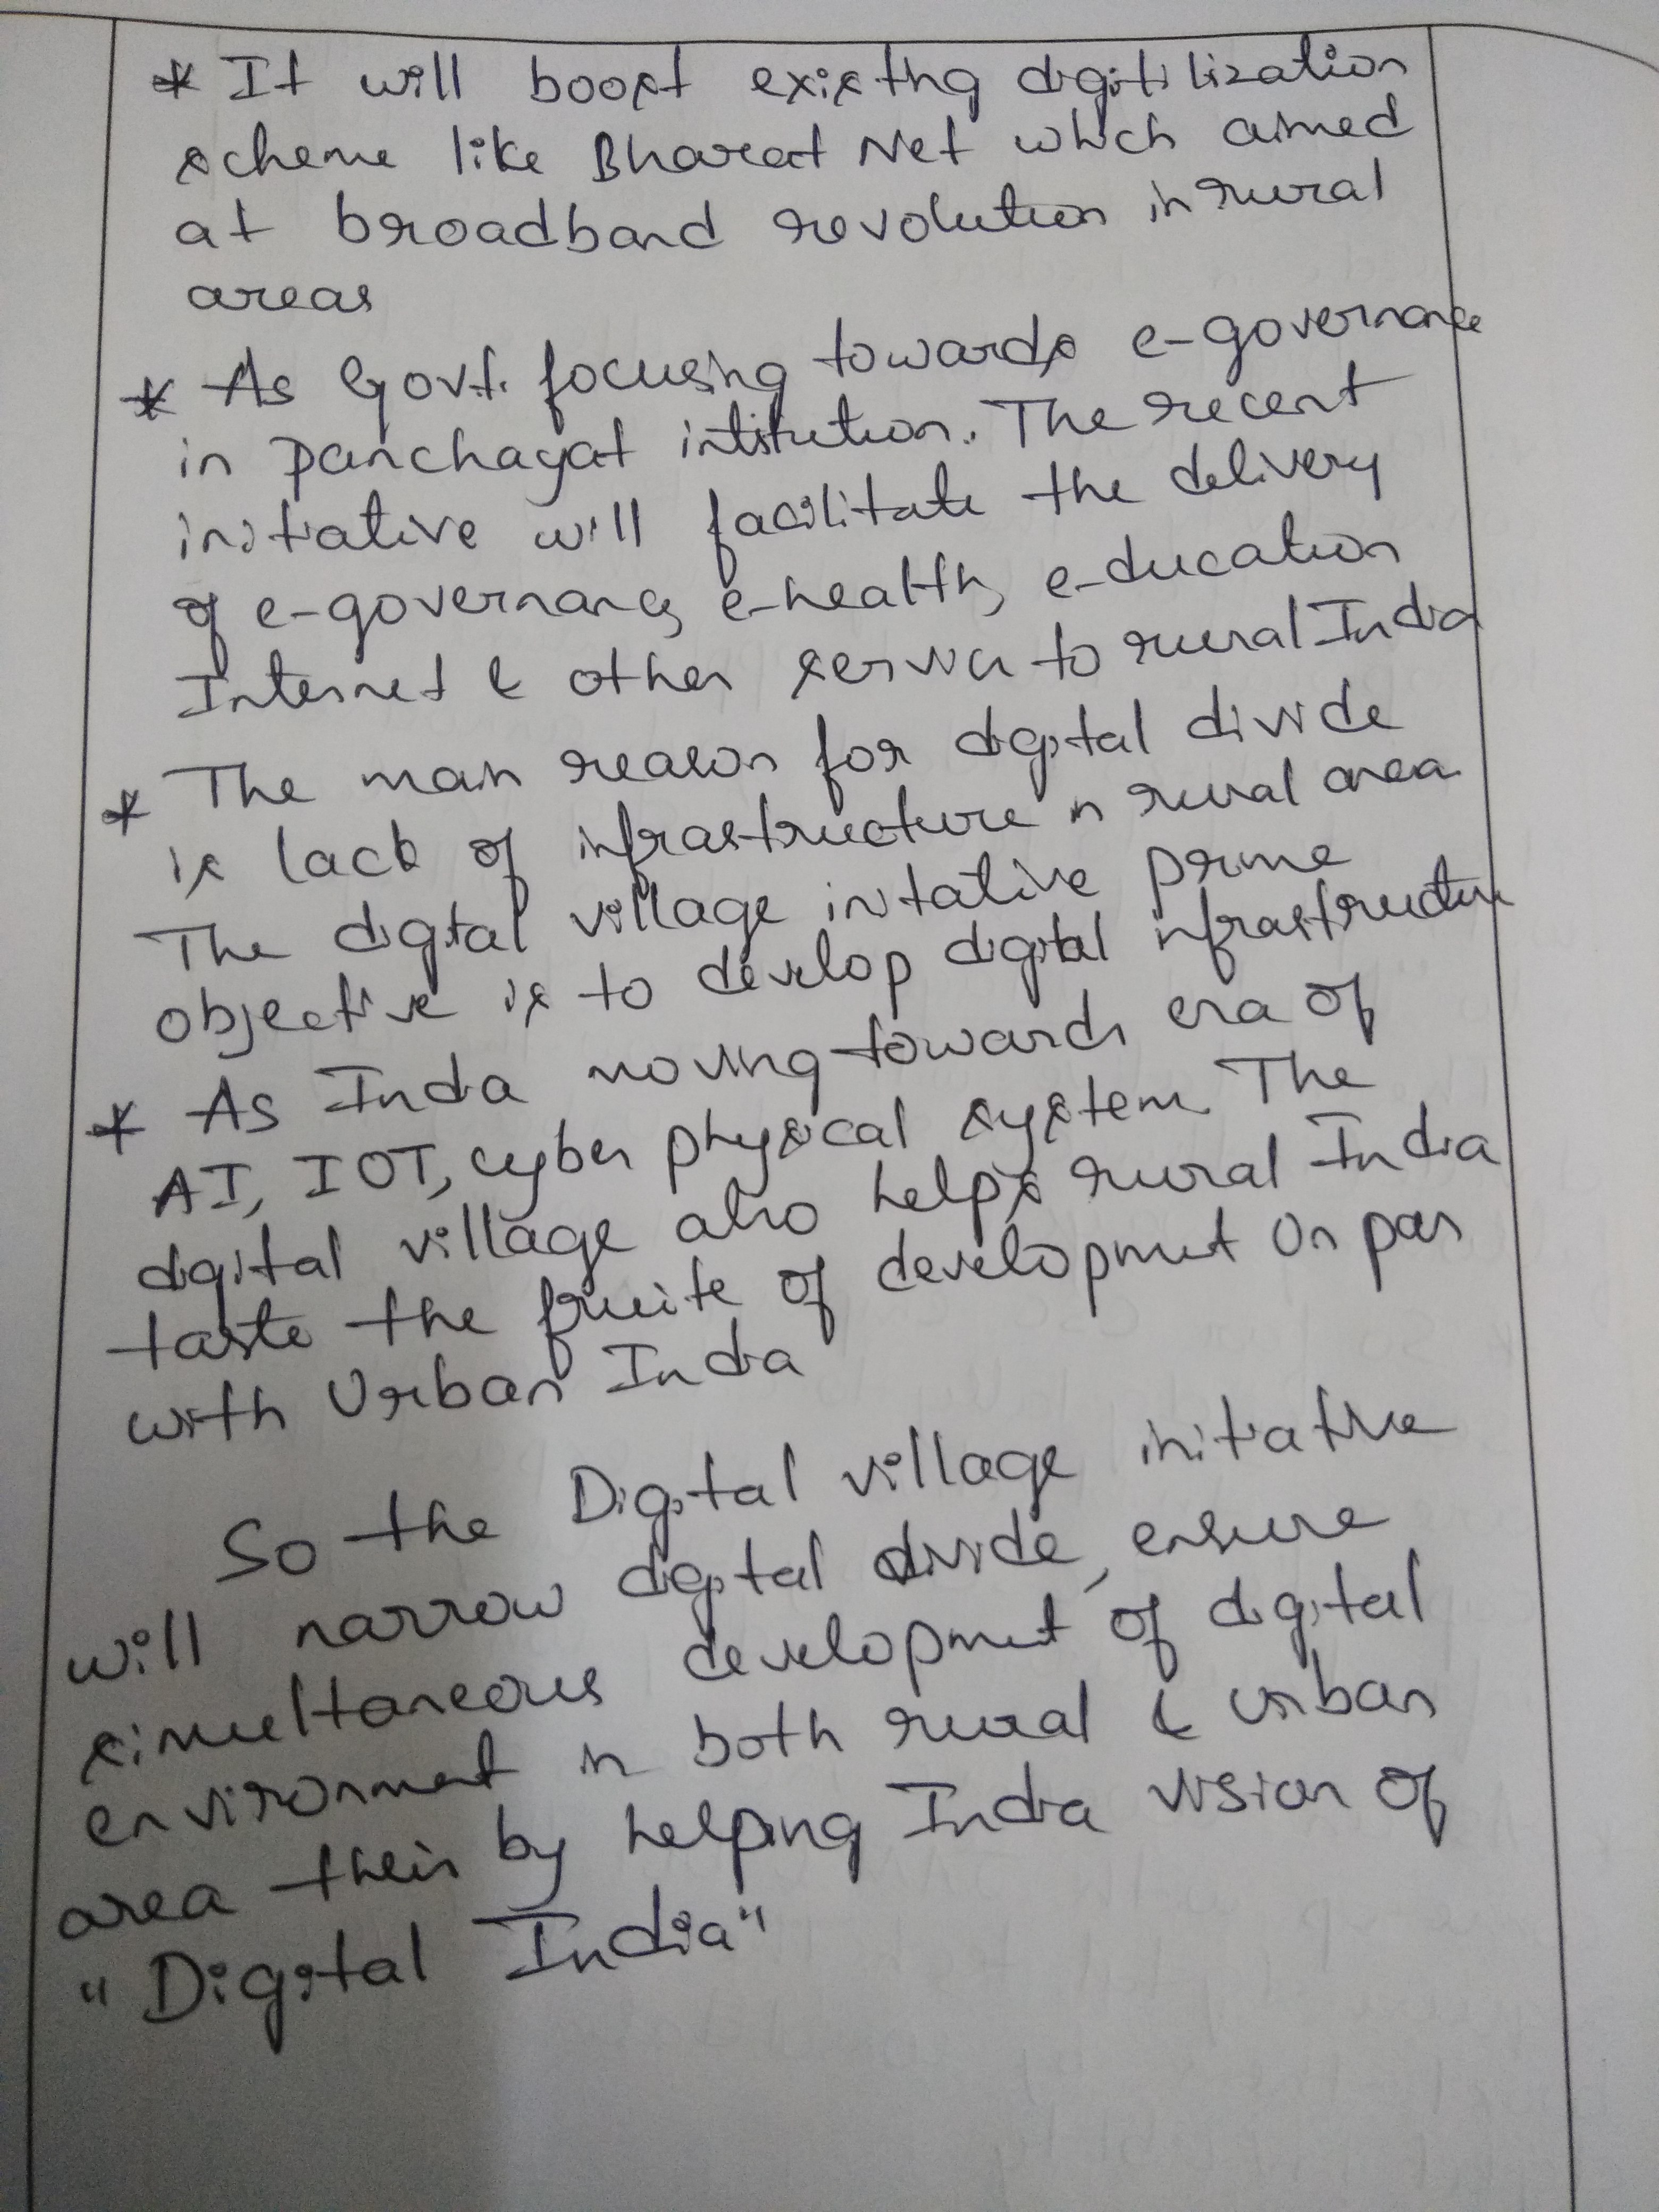 * It will boost existing digitilization
scheme like Bharat Net which aimed
at broadband revolution in rural
areas
* As Govt. focusing towards e-governance
in panchayat intitution. The recent
initiative will facilitate the delivery
of e-governance, e-health, e-ducation
Internet & other service to rural India
* The main reason for digital divide
is lack of infrastructure in rural area
The digital village initative prime
objective is to develop digital infrastructure
* As India moving towards era of
AI, IOT, cyber physical system. The
digital village also helps rural India
taste the fruite of development on par
with Urban India
So the Digital village initiative
will narrow digital divide, ensure
simultaneous development of digital
environment in both rural & urban
area their by helping India vision of
"Digital India"